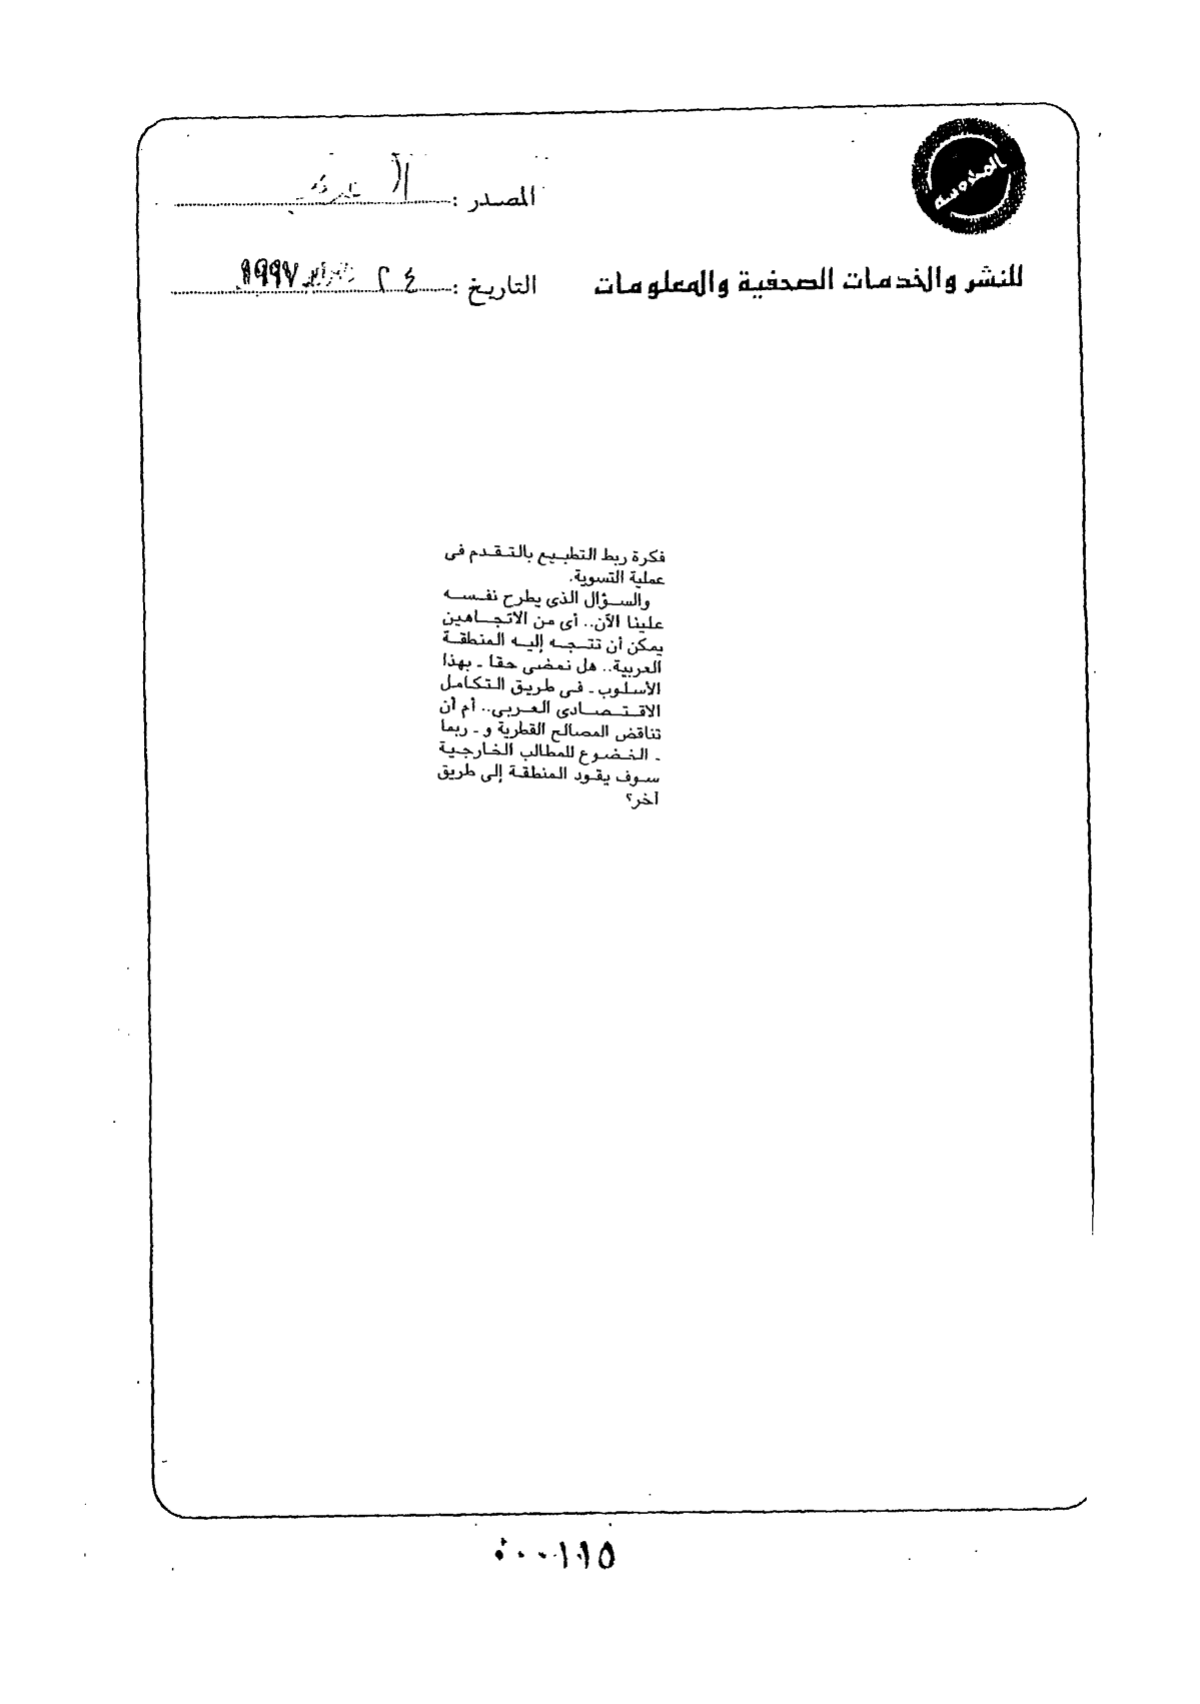 المصدر :
للنشر والخدمات الصحفية والمعلومات
التاريخ : ٢٤ ١٩٩٧
فكرة ربط التطبيع بالتقدم فى
عملية التسوية.
والسؤال الذى يطرح نفسه
علينا الآن.. أى من الاتجاهين
يمكن أن تتجه إليه المنطقة
العربية.. هل نمضى حقا ـ بهذا
الأسلوب ـ فى طريق التكامل
الاقتصادى العربى.. أم أن
تناقض المصالح القطرية و ـ ربما
ـ الخضوع للمطالب الخارجية
سوف يقود المنطقة إلى طريق
آخر؟